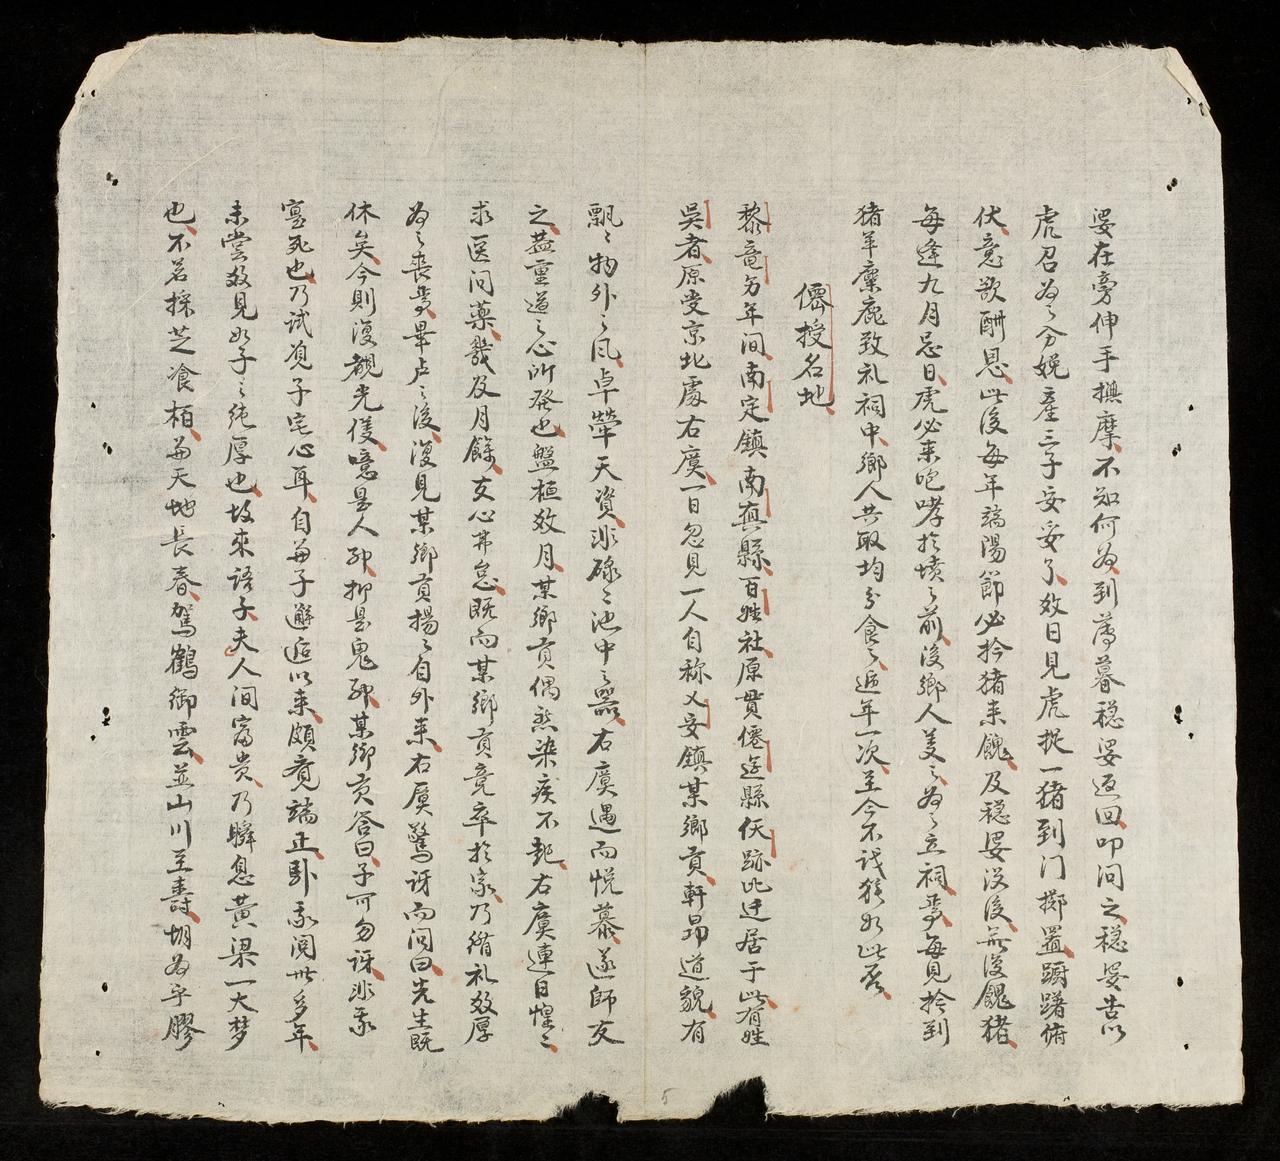 婆在旁伸手撫摩不知何為到薄暮穏婆返回叩问之穏婆告以
虎召為之分娩產三子妥妥了数日見虎捉一猪到门擲置躕躇俯
伏意欲酬恩此後每年端陽節必拎猪来餽及穏婆没後無復餽猪
每逢九月忌日虎必来咆哮扵墳之前後鄉人美之為之立祠亭每見拎到
猪羊麋鹿致礼祠中鄉人共取均分食之近年一次至今不
僊授名地
黎 年间南定鎮南真縣百姓社原貫僊遊縣 跡比迁居于此有姓
吳者原受京北處右 一日忽見一人自称乂安鎮某鄉貢軒昻道貌有
飄〻物外之风卓犖天資非碌〻池中之器右 遇而悦慕遂師友
之葢重道之心所發也盤桓数月某鄉貢偶然染疾不起右 連日惶〻
求医问藥幾及月餘友心弗怠既而某鄉貢竟卒扵家乃備礼数厚
為之喪葬畢 之後復見某鄉貢揚〻自外来右 驚讶而问曰先生既
休矣今則復覩光 噫是人耶抑是鬼耶某鄉貢答曰子可勿讶非我
寔死也乃試 子宅心耳自與子邂逅以来頗 端正卧我阅世多年
未嘗数見如子之純厚也故來語子夫人间富贵乃瞬息黄梁一大梦
也不若採芝飡栢與天地長春駕鶴御雲並山川至壽胡為乎膠